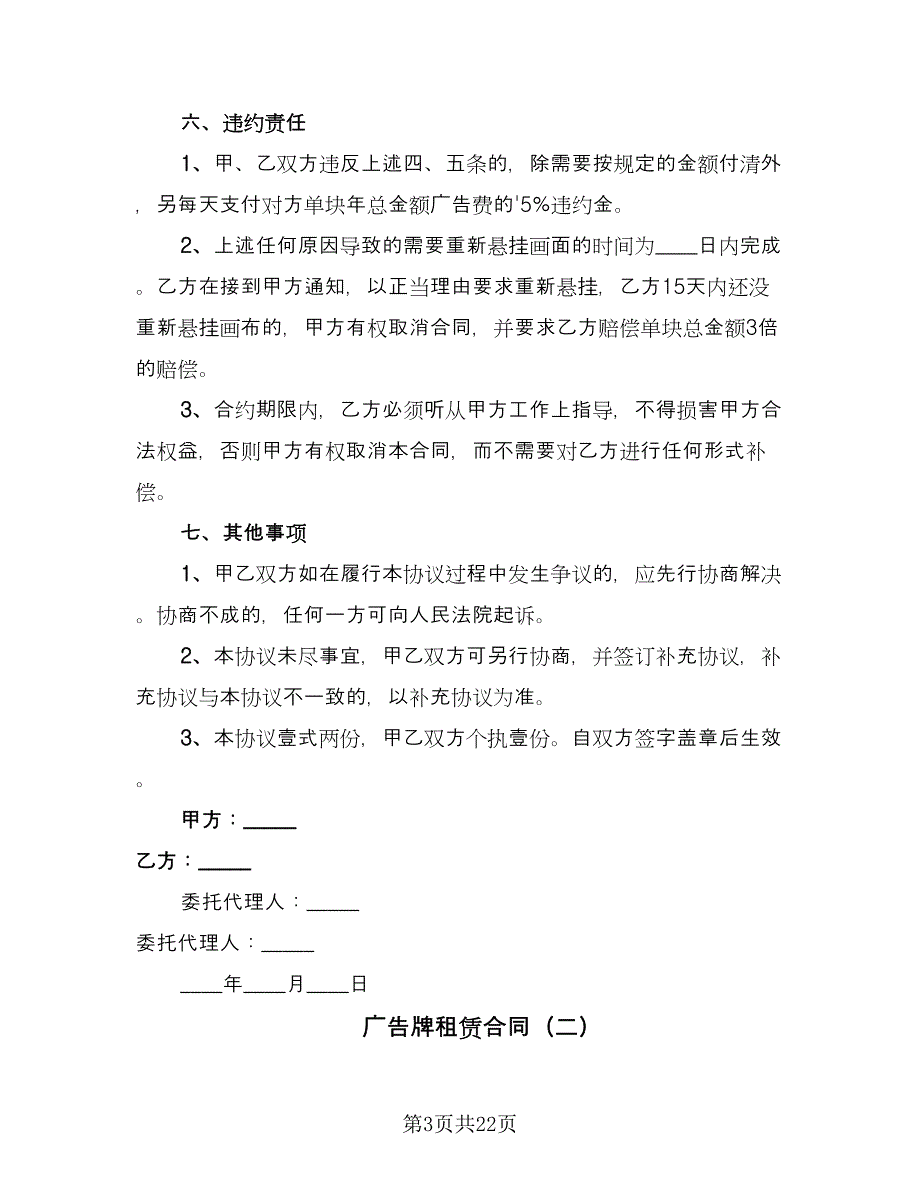 六、违约责任
1、甲、乙双方违反上述四、五条的，除需要按规定的金额付清外
，另每天支付对方单块年总金额广告费的'5%违约金。
2、上述任何原因导致的需要重新悬挂画面的时间为____日内完成
。乙方在接到甲方通知，以正当理由要求重新悬挂，乙方15天内还没
重新悬挂画布的，甲方有权取消合同，并要求乙方赔偿单块总金额3倍
的赔偿。
3、合约期限内，乙方必须听从甲方工作上指导，不得损害甲方合
法权益，否则甲方有权取消本合同，而不需要对乙方进行任何形式补
偿。
七、其他事项
1、甲乙双方如在履行本协议过程中发生争议的，应先行协商解决
。协商不成的，任何一方可向人民法院起诉。
2、本协议未尽事宜，甲乙双方可另行协商，并签订补充协议，补
充协议与本协议不一致的，以补充协议为准。
3、本协议壹式两份，甲乙双方个执壹份。自双方签字盖章后生效
。
甲方：_____
乙方：_____
委托代理人：_____
委托代理人：_____
____年____月____日
广告牌租赁合同（二）
第3页共22页